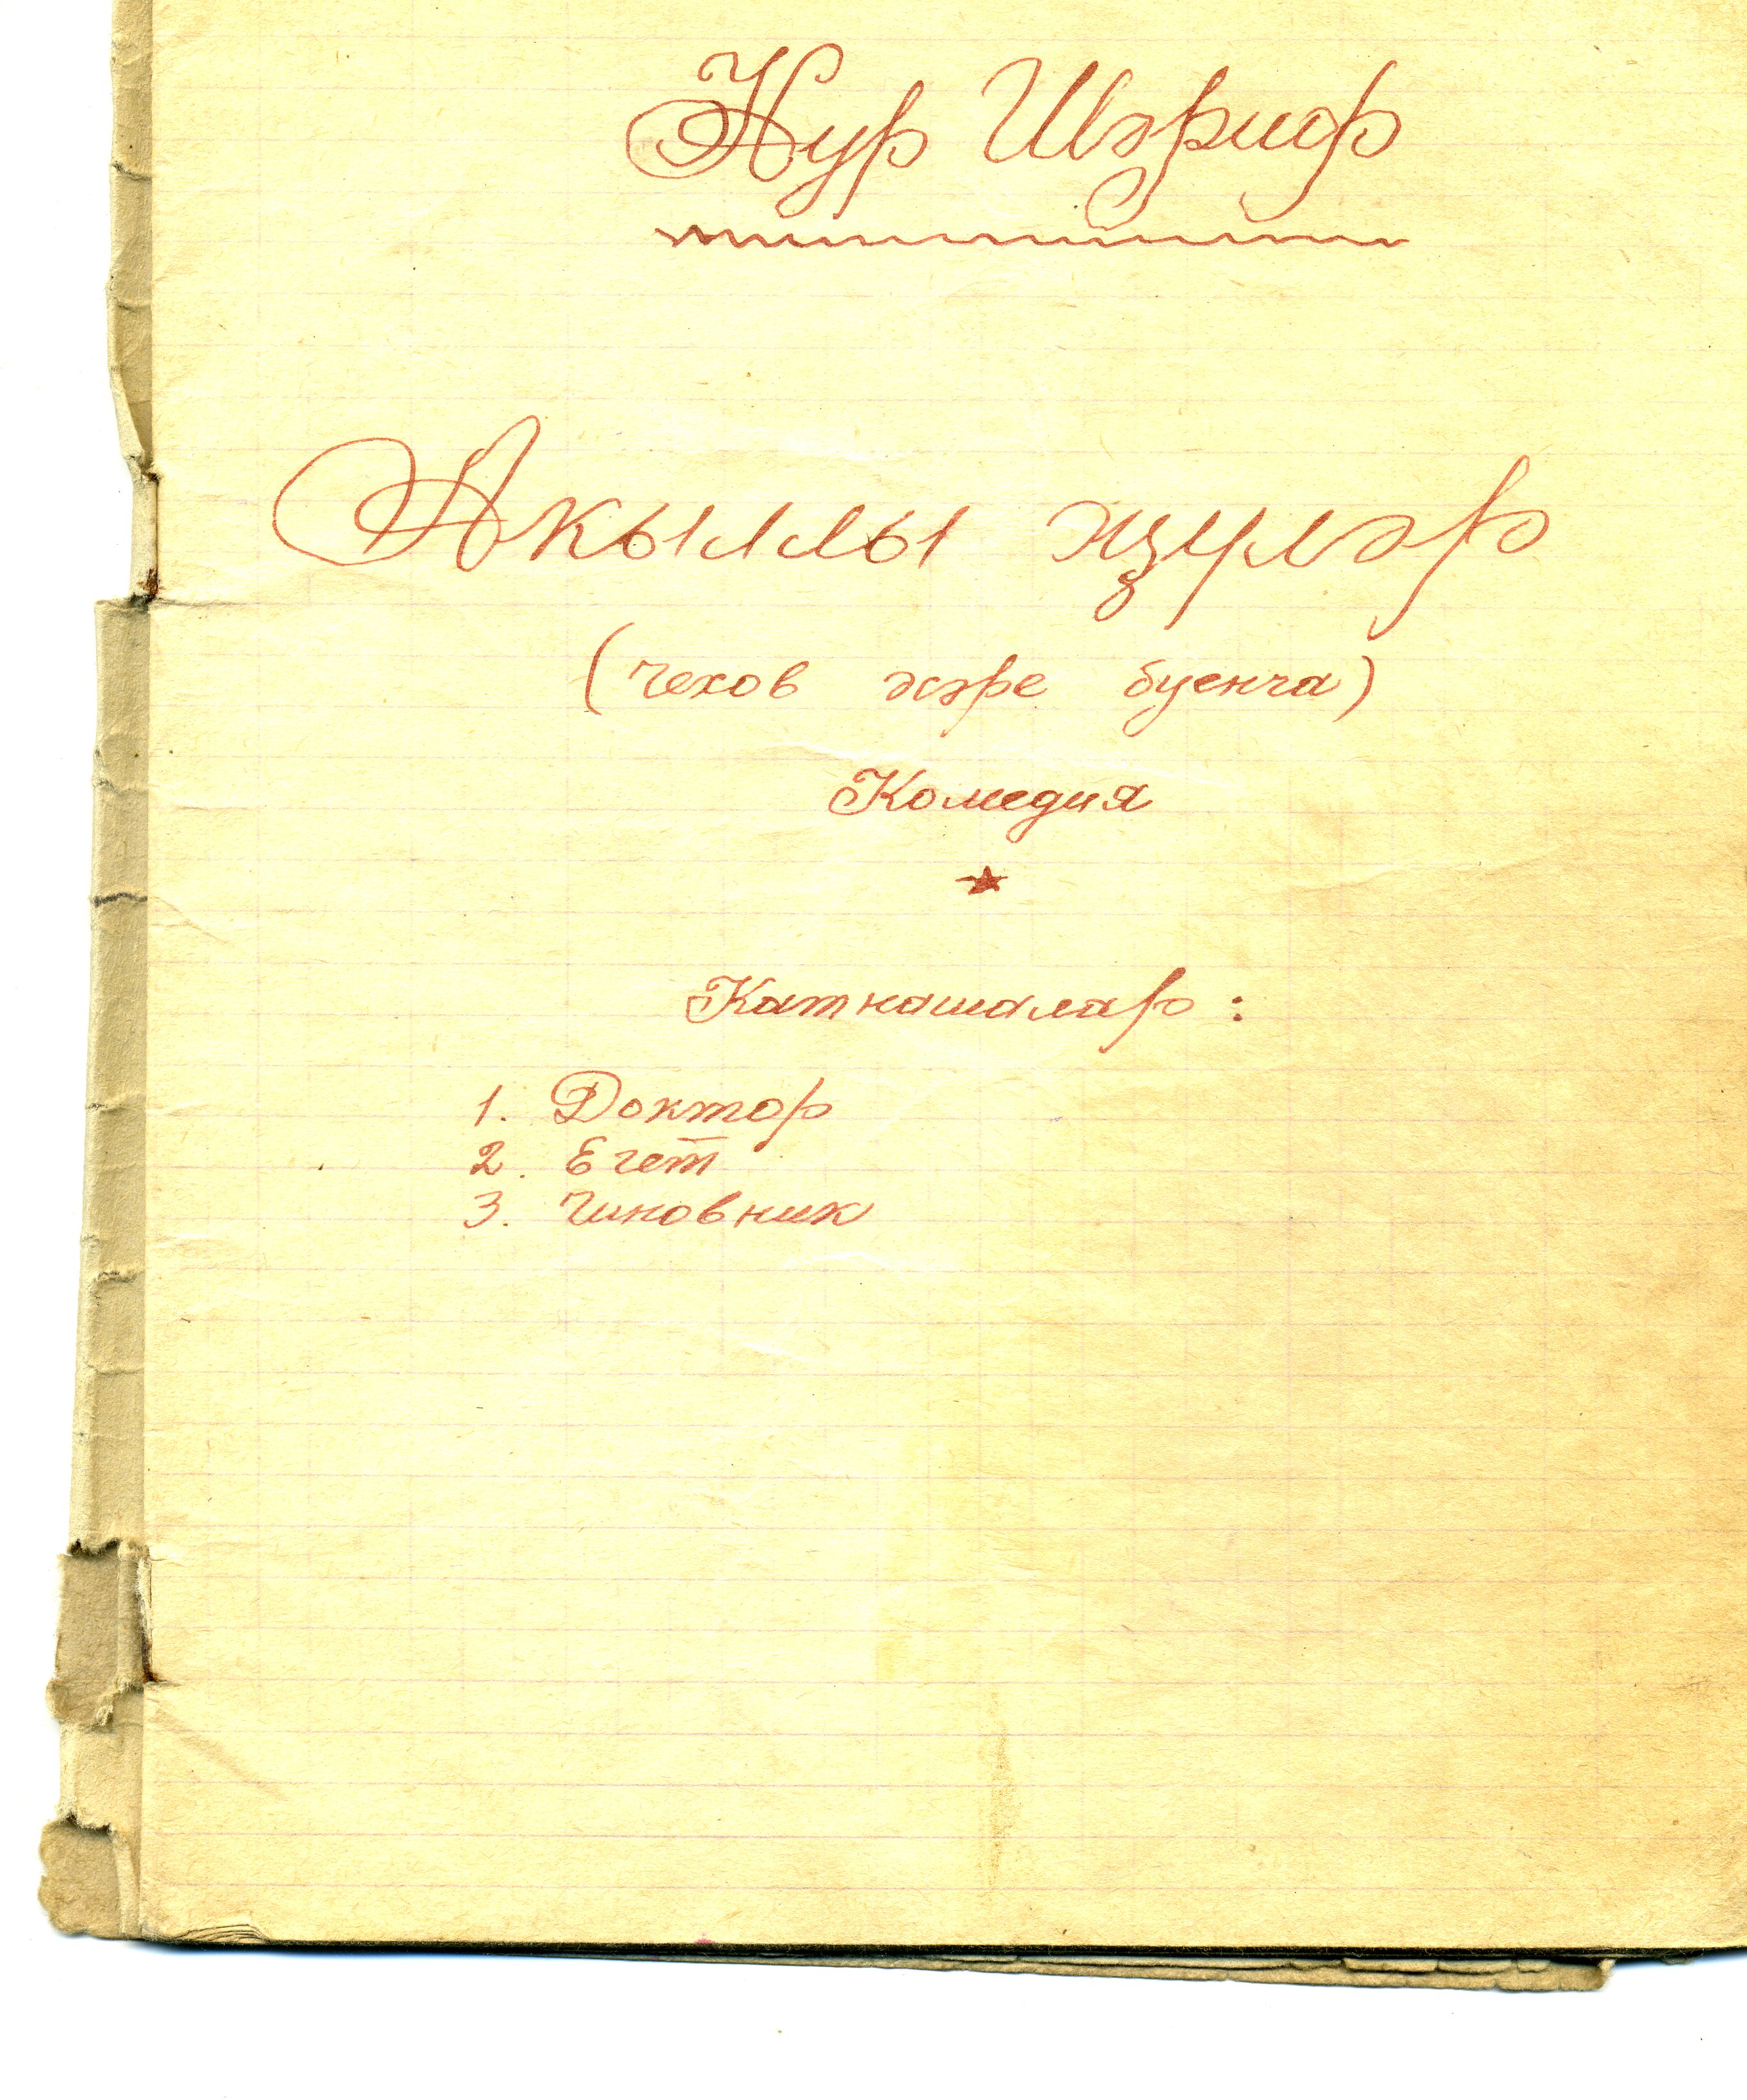 Нур Шәриф
Акыллы җүләр
(Чехов әсәре буенча)
Комедия
Катнашалар:
1. Доктор
2. Егет
3. Чиновник